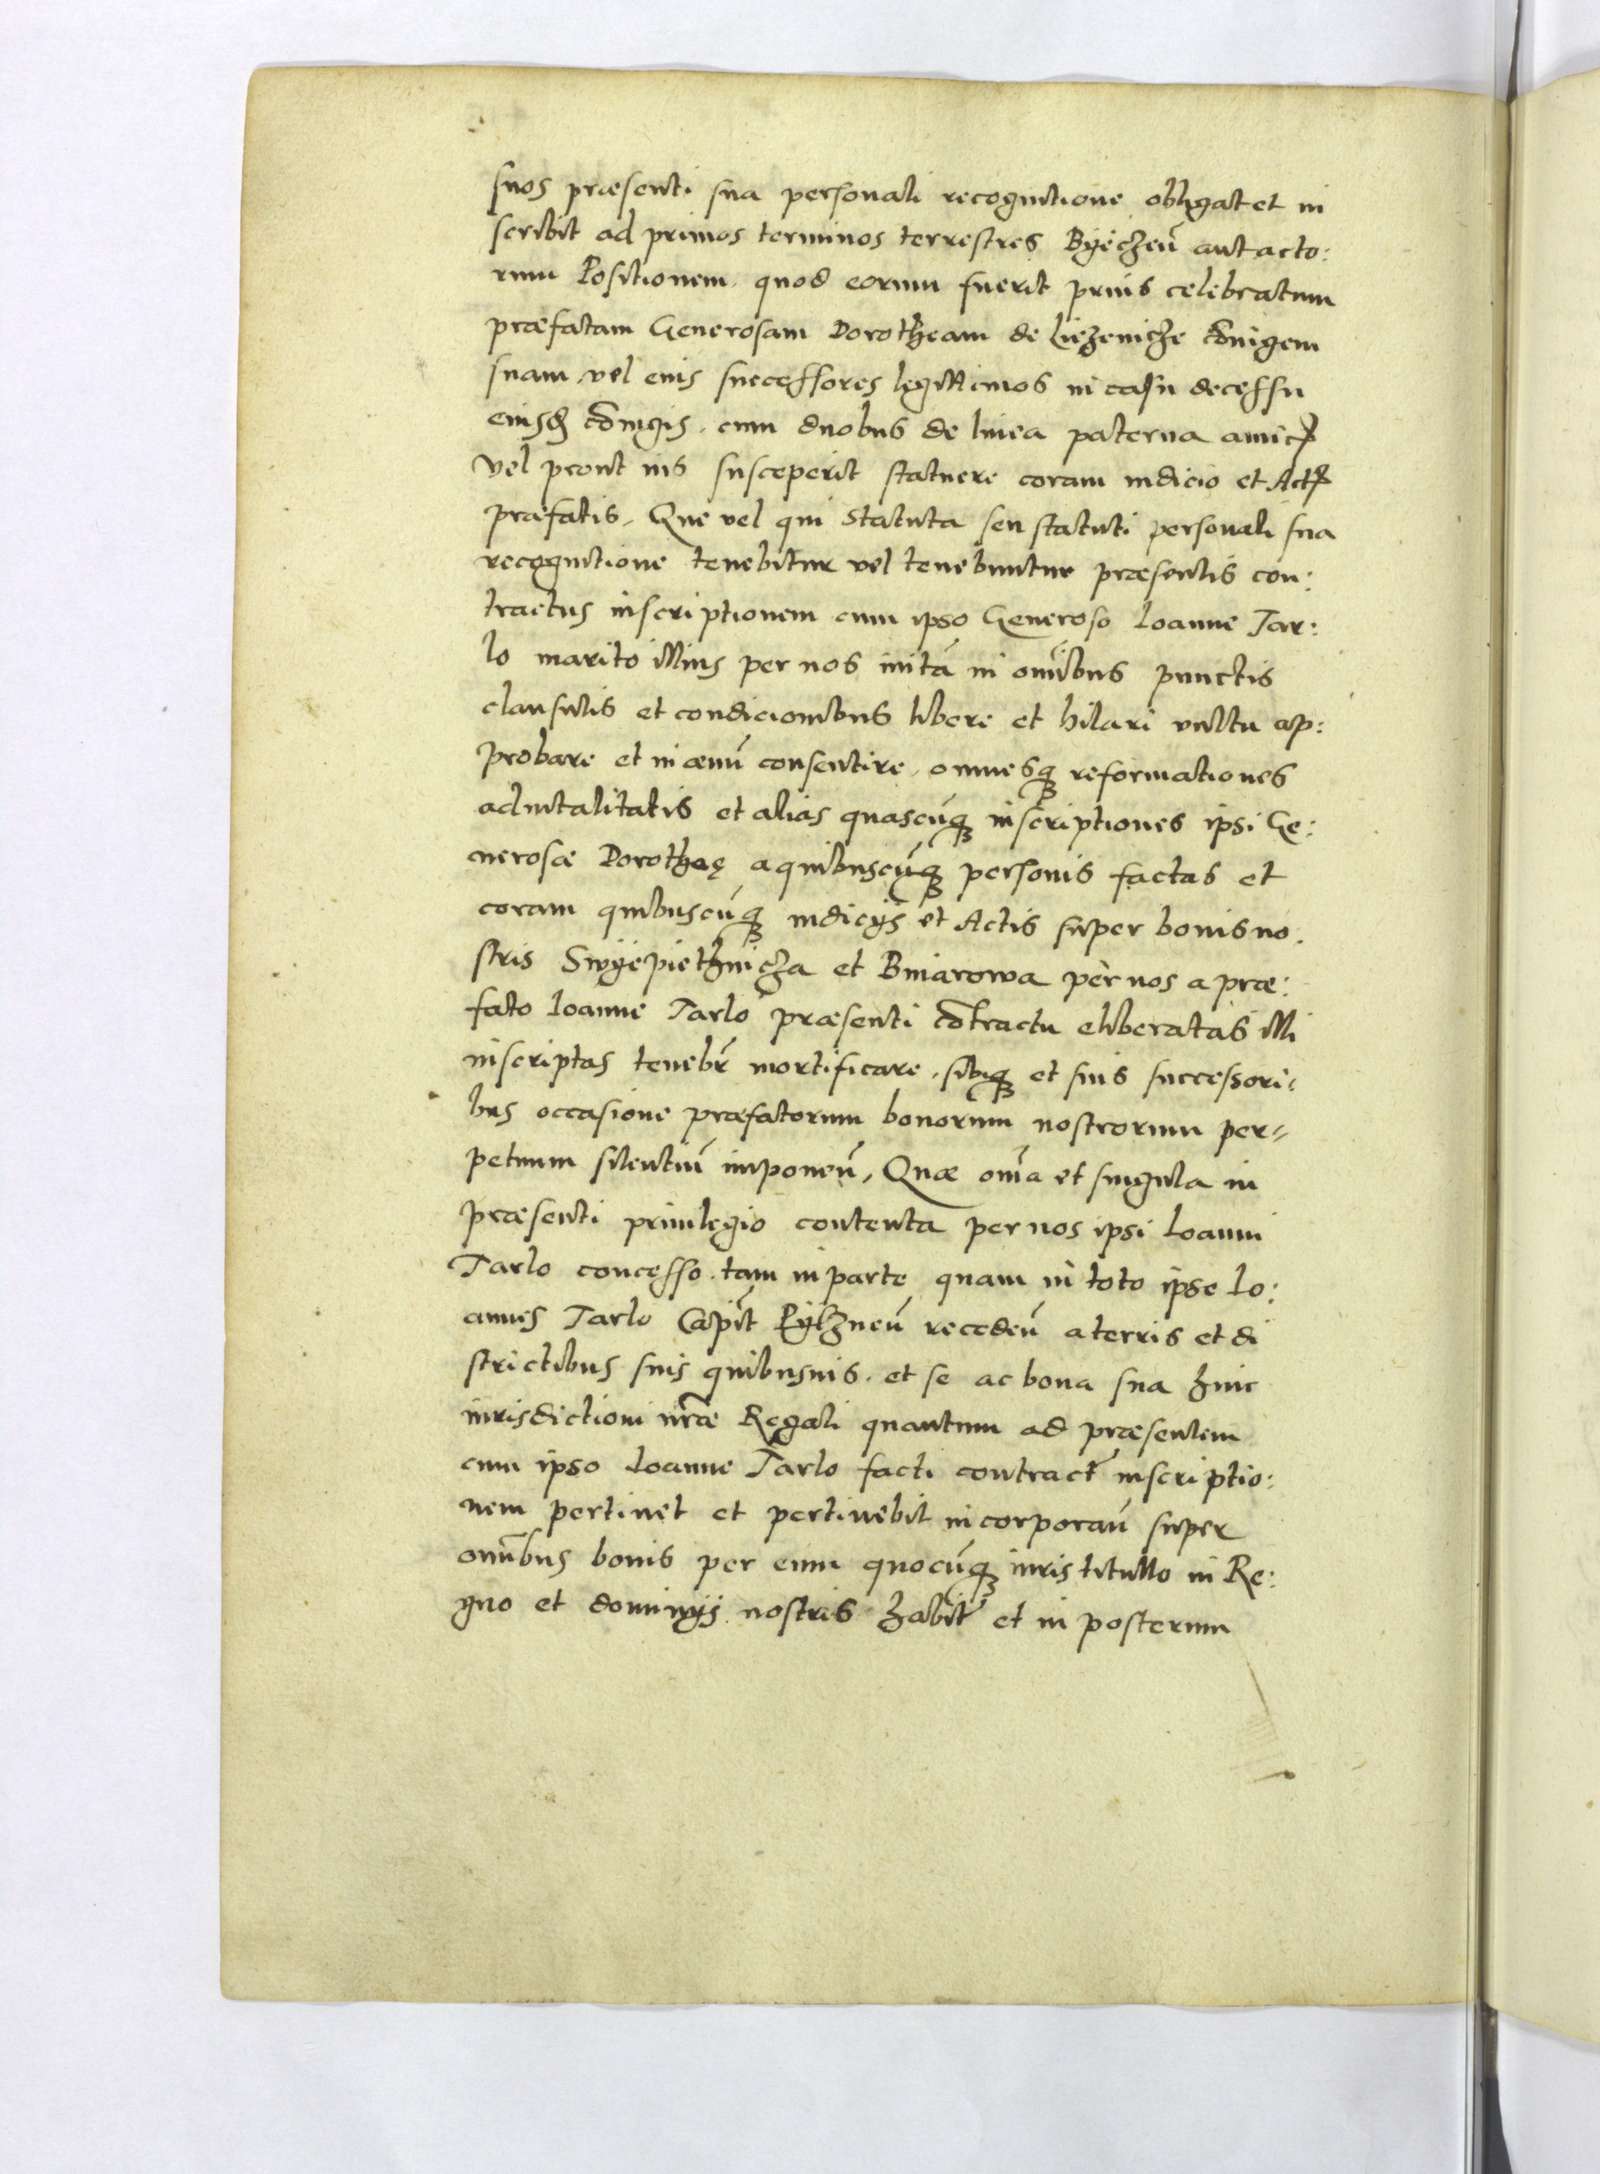 suos præsenti sua personali recognitione obligat et in
scribit ad primos terminos terrestres Byeczeñ aut acto:
rum Positionem, quod eorum fuerit prius celebratum
præfatam Generosam Dorotheam de Liezenicze cōiugem
suam, vel eius successores legittimos in casu decessu
eiusd cōiugis, cum duobus de linea paterna amic
vel prout ius susceperit statuere coram iudicio et Act
præfatis, Que vel qui Statuta seu statuti personali sua
recognitione tenebitur vel tenebuntur præsentis con:
tractus inscriptionem cum ipso Generoso Ioanne Tar:
lo marito illius per nos initā in om̃ibus punctis
clausulis et condicionibus libere et hilari vultu ap:
probare et in æuũ consentire, omnesq reformationes
aduitalitatis et alias quascũq inscriptiones ipsi Ge:
nerosæ Dorotheę a quibuscũq personis factas et
coram quibuscũq iudicijs et Actis super bonis no:
stris Swyepiethnicza et Binarowa per nos a præ:
fato Ioanne Tarlo præsenti cōtractu eliberatas illi
inscriptas tenebr̃ mortificare, sibiq et suis successori:
bus occasione præfatorum bonorum nostrorum per=
petuum silentiũ imponeñ, Quæ om̃a et singula in
præsenti priuilegio contenta per nos ipsi Ioanni
Tarlo concesso, tam in parte quam in toto ipse Io:
annes Tarlo Capit̃ Pylzneñ recedeñ a terris et di
strictibus suis quibusuis, et se ac bona sua huic
iurisdictioni nr̃æ Regali quantum ad præsentem
cum ipso Ioanne Tarlo facti contract̃ inscriptio:
nem pertinet et pertinebit incorporañ super
om̃ibus bonis per eum quocũq iuris titullo in Re:
gno et dominijs nostris habit̃ et in posterum